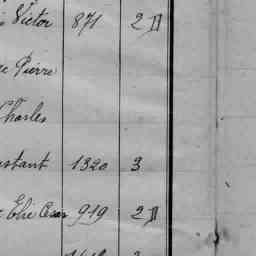 Victor 871 2 D
Pierre
Charles
stant 1320 3
Elie Cesar 919 2 D